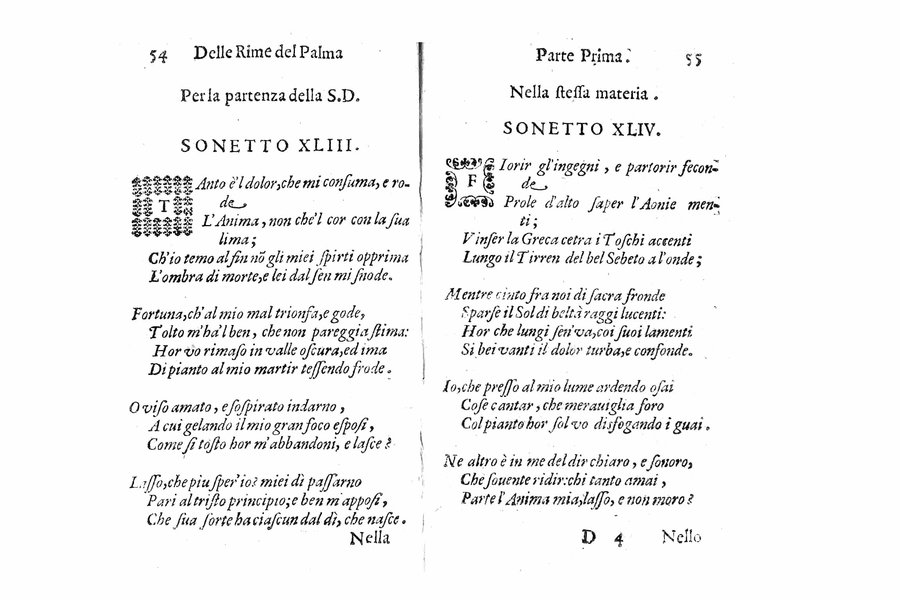 54 Delle Rime del Palma
Per la partenza della S.D.
SONETTO XLIII.
TAnto è'l dolor,che mi conſuma, e ro-
de
L'Anima, non che'l cor con la ſua
lima;
Ch'io temo alfin nō gli miei ſpirti opprima
L'ombra di morte,e lei dal ſen mi ſnode.
Fortuna,ch'al mio mal trionfa,e gode,
Tolto m'ha'l ben, che non pareggia ſtima:
Hor vo rimaſo in valle oſcura,ed ima
Di pianto al mio martir teſſendo frode.
O viſo amato, e ſoſpirato indarno,
A cui gelando il mio gran foco eſpoſi,
Come ſi toſto hor m'abbandoni, e laſce?
Laſſo,che piu ſper'io? miei dì paſſarno
Pari al triſto principio;e ben m'appoſi,
Che ſua ſorte ha ciaſcun dal dì, che naſce.
Nella
Parte Prima. 55
Nella ſteſſa materia.
SONETTO XLIV.
FIorir gl'ingegni, e partorir fecon-
de
Prole d'alto ſaper l'Aonie men-
ti;
Vinſer la Greca cetra i Toſchi accenti
Lungo il Tirren del bel Sebeto a l'onde;
Mentre cinto fra noi di ſacra fronde
Sparſe il Sol di beltà raggi lucenti:
Hor che lungi ſen'va,coi ſuoi lamenti
Si bei vanti il dolor turba,e confonde.
Io,che preſſo al mio lume ardendo oſai
Coſe cantar, che merauiglia foro
Col pianto hor ſol vo disfogando i guai.
Ne altro è in me del dir chiaro, e ſonoro,
Che ſouente ridir:chi tanto amai,
Parte l'Anima mia,laſſo, e non moro?
D 4 Nello